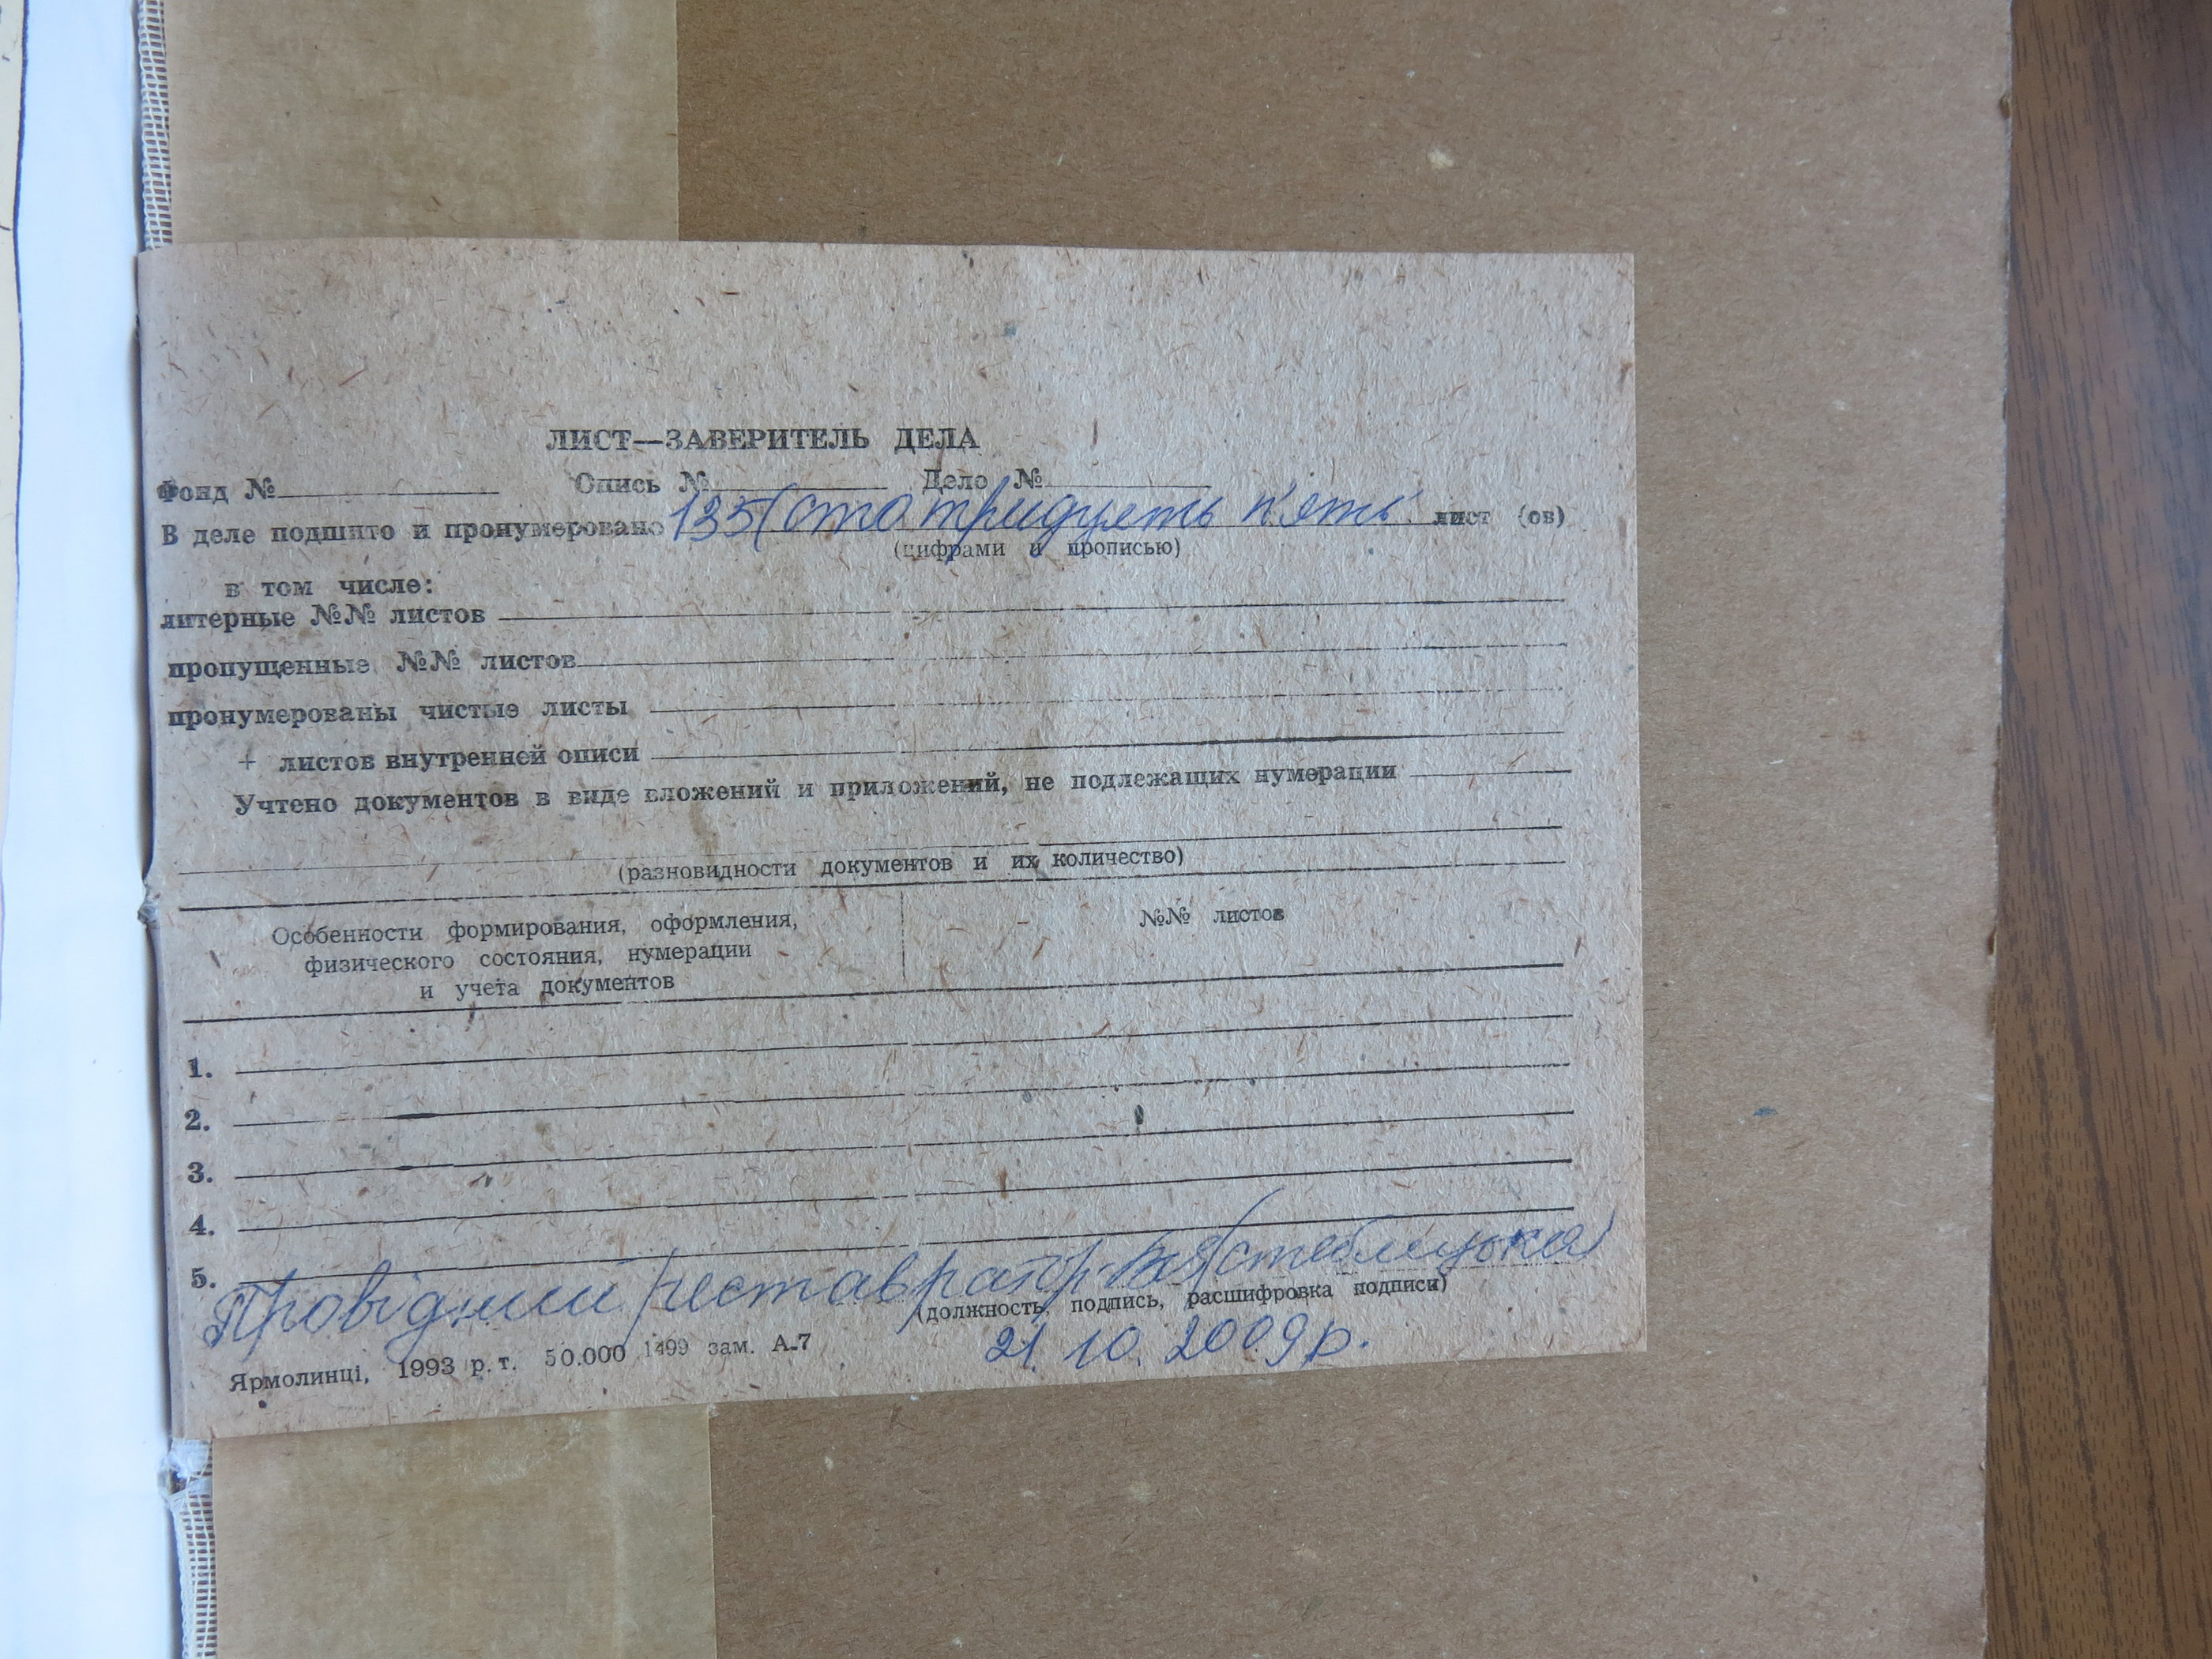 ЛИСТ—ЗАВЕРИТЕЛЬ ДЕЛА
Фонд № Опись № Дело №
В деле подшито и пронумеровано 135 (сто тридцять п'ять лист (ов)
(цифрами и прописью)
в том числе:
литерные №№ листов
пропущенные №№ листов
пронумерованы чистые листы
+ листов внутренней описи
Учтено документов в виде вложений и приложений, не подлежащих нумерации
(разновидности документов и их количество)
Особенности формирования, оформления, №№ листов
физического состояния, нумерации
и учета документов
1.
2.
3.
4.
5.
Провідний реставратор (Стеблицька)
(должность, подпись, расшифровка подписи)
21. 10. 2009р.
Ярмолинці, 1993 р. т. 50.000 1499 зам. А-7